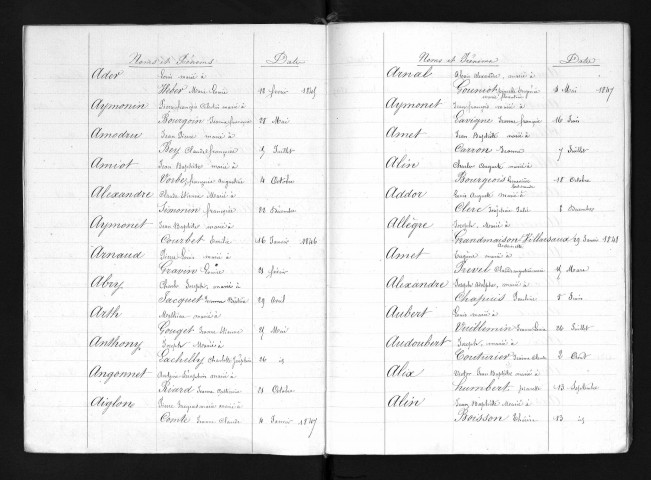 Noms et Prénoms Date
Ader Louis marié à
Weber Marie Louise 12 février 1845
Aymonin Pierre françois marié à
Bourgoin Jeanne françoise 28 Mai
Amodru Jean Pierre marié à
Bey Claude françoise Juillet
Amiot Jean Baptiste marié à
Vorbe françoise Augustine 4 Octobre
Alexandre Claude Etienne Marié à
Simonin françoise 22 Décembre
Aymonet Jean Baptiste marié à
Courbet Emilie 16 Janvier 1846
Arnaud Pierre Louis marié à
Gravin Louise 21 février
Abry Charles Joseph, marié à
Jacquet Jeanne 29 Avril
Arth Matthieu marié à
Gouget Jeanne Mai
Anthony Joseph Marié à
Lachelly Charlotte Joséphine 26 id
Angonnet marié à
Réard Jeanne Catherine 21 Octobre
Aiglon Pierre marié à
Comte Jeanne Claude 4 Janvier 1847
Noms et Prénoms Date
Arnal Alexandre, marié à
Gouniot 3 Mai 1847
Aymonet Jean françois marié à
Lavigne Jeanne françoise 16 Juin
Amet Jean Baptiste marié à
Carron Jeanne 7 Juillet
Alin Charles Auguste marié à
Bourgeois 18 Octobre
Addor Louis Auguste marié à
Clerc Joséphine 8 Décembre
Allègre Joseph, Marié à
Grandmaison Villarsaud 29 Janvier 1848
Amet Eugène marié à
Prevel Mars
Alexandre Joseph Adolphe, marié à
Chapuis Pauline 5 Juin
Aubert Louis marié à
Vuillemin Jeanne Louise 26 Juillet
Audoubert Joseph, marié à
Couturier 2 Août
Alix Victor Jean Baptiste marié à
humbert 13 Septembre
Alin Jean Baptiste Marié à
Boisson 13 id